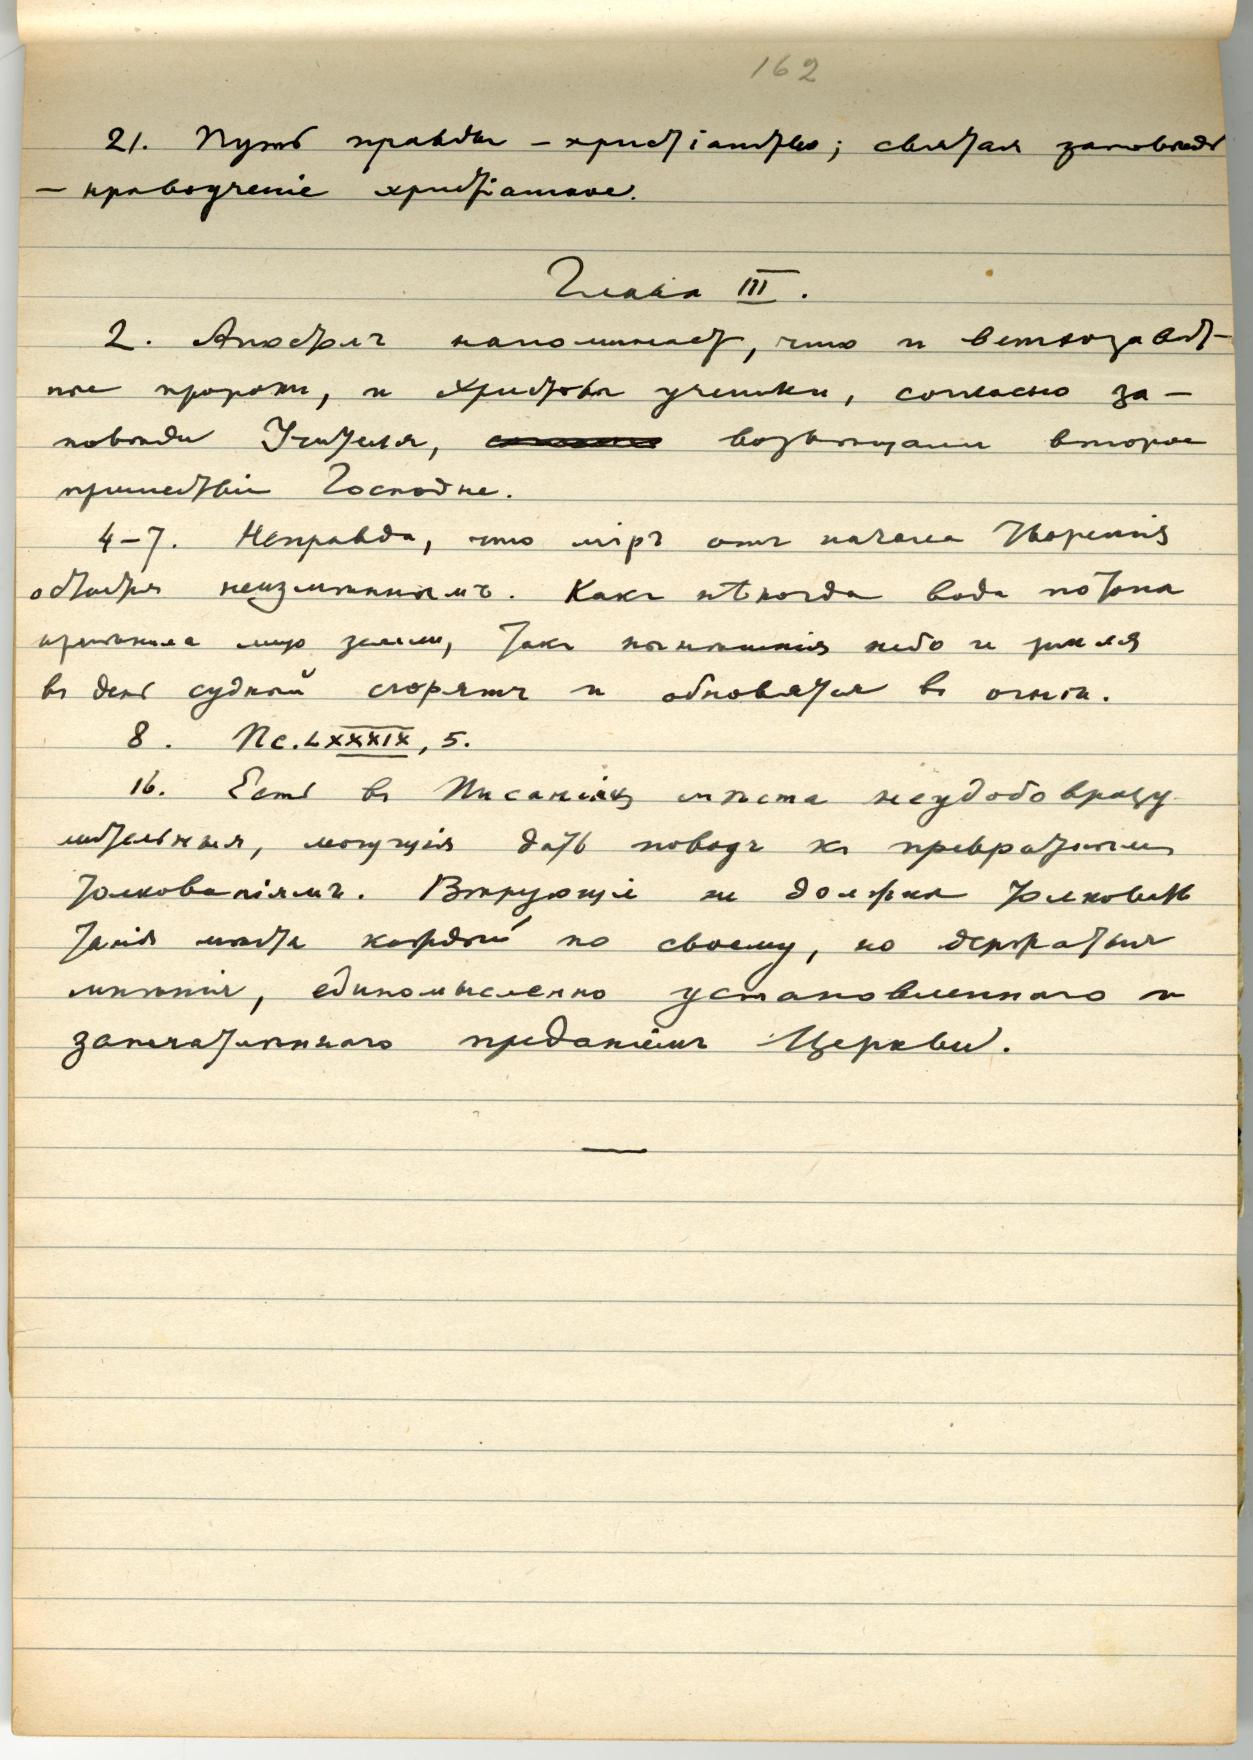 162
21. Путь правды – христіанство; святая заповѣдь
– нравоученіе христіанское.
Глава III.
2. Апостолъ напоминаетъ, что и ветхозавѣт-
ные пророки, и Христовы ученики, согласно за-
повѣди Учителя, возвѣщали второе
пришествіе Господне.
4–7. Неправда, что міръ отъ начала творенія
остается неизмѣннымъ. Какъ нѣкогда вода потопа
измѣнила лицо земли, такъ нынѣшнія небо и земля
въ день судный сгорятъ и обновятся въ огнѣ.
8. Пс. LXXXIX, 5.
16. Есть въ Писаніяхъ мѣста неудобовразу
мительныя, могущія дать поводъ къ превратнымъ
толкованіямъ. Вѣрующіе не должны толковать
такія мѣста каждый по своему, но держаться
мнѣнія, единомысленно установленнаго и
запечатлѣннаго преданіемъ Церкви.